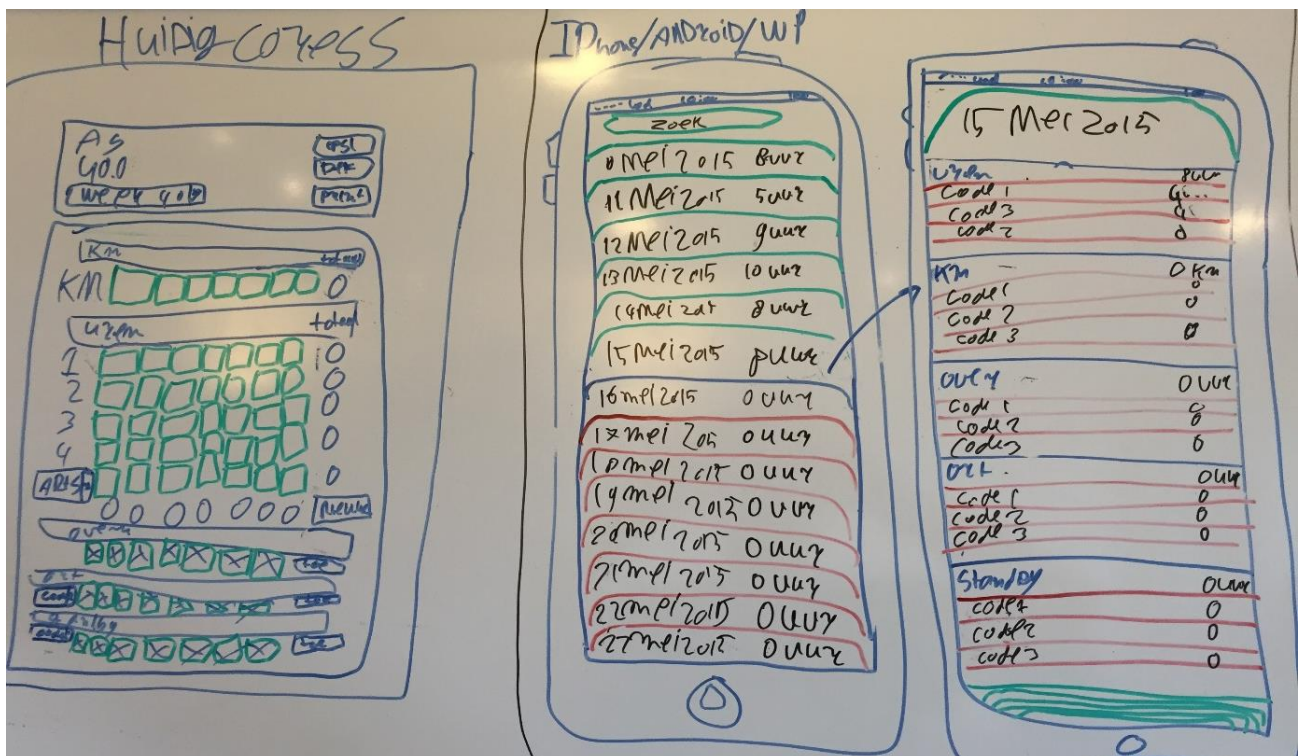 Huidig
IPhone/ANDroiD/WP
AS
40.0
week 40
Print
Km
KM 0
uren totaal
1 0
2 0
3 0
4 0
0
0 0 0 0 0 0 0
overu
zoek
mei 2015 8uur
11 Mei 2015 5uur
12 Mei 2015 9uur
13 Mei 2015 10 uur
14 mei 201 8 uur
15 Mei 2015 8uur
16 mei 2015 0 uur
17 mei 205 0uur
18 mei 2015 0 uur
19 mei 2015 0 uur
20 mei 2015 0 uur
21 mei 2015 0 uur
22 mei 2015 0uur
mei 2015 0 uur
15 Mei 2015
Uren 8uur
Code 1
Code 3
code 2 0
KM 0 Km
Code 1 0
Code 2 0
Code 3 0
over 0 uur
Code 1 0
Code 2 0
Code 3 0
ort 0 uur
Code 1 0
Code 2 0
Code 3 0
Standby 0 uur
code 1 0
code 2 0
code 3 0